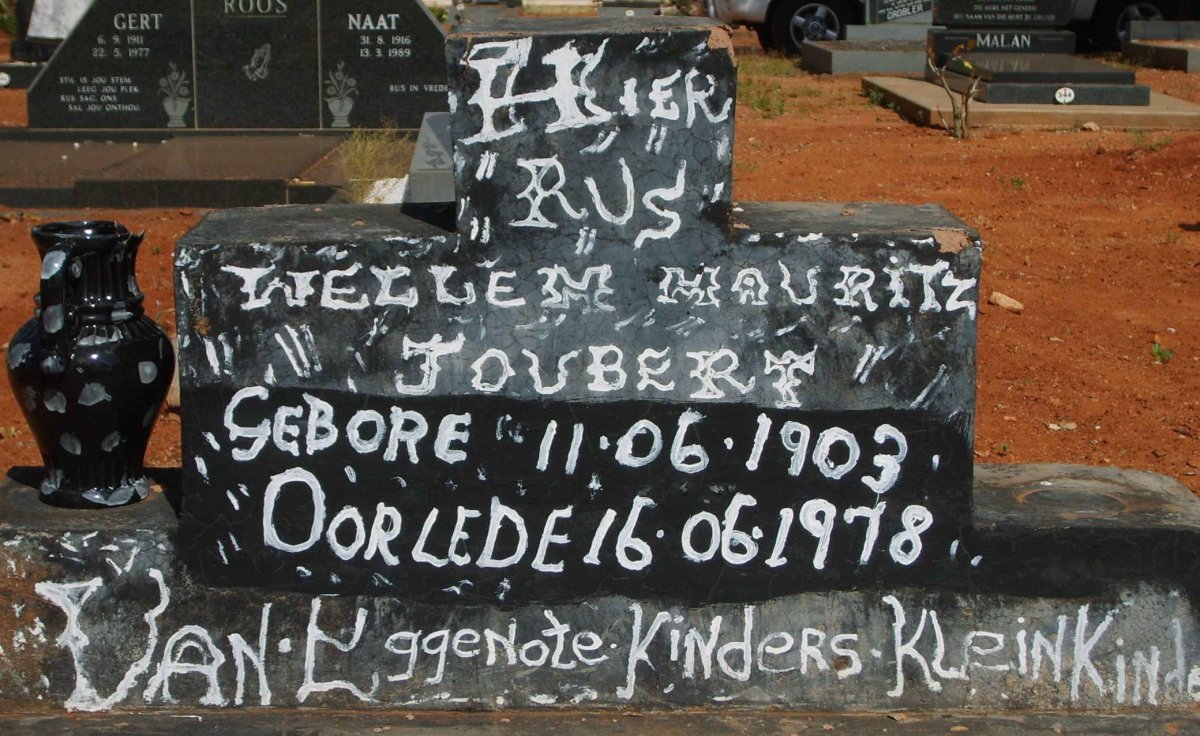 GERT
6. 9. 1911
22. 5. 1977
STIL IS JOU STEM
LEEG JOU PLEK,
RUS SAG, ONS
SAL JOU ONTHOU.
ROOS
NAAT
31. 8. 1916
13. 3. 1989
RUS IN VREDE
GROBLER
MALAN
544
HIER
RUS
WELLEM MAURITZ
JOUBERT
GEBORE 11.06.1903
OORLEDE 16.06.1978
VAN. Eggenote. Kinders. KLeinKind